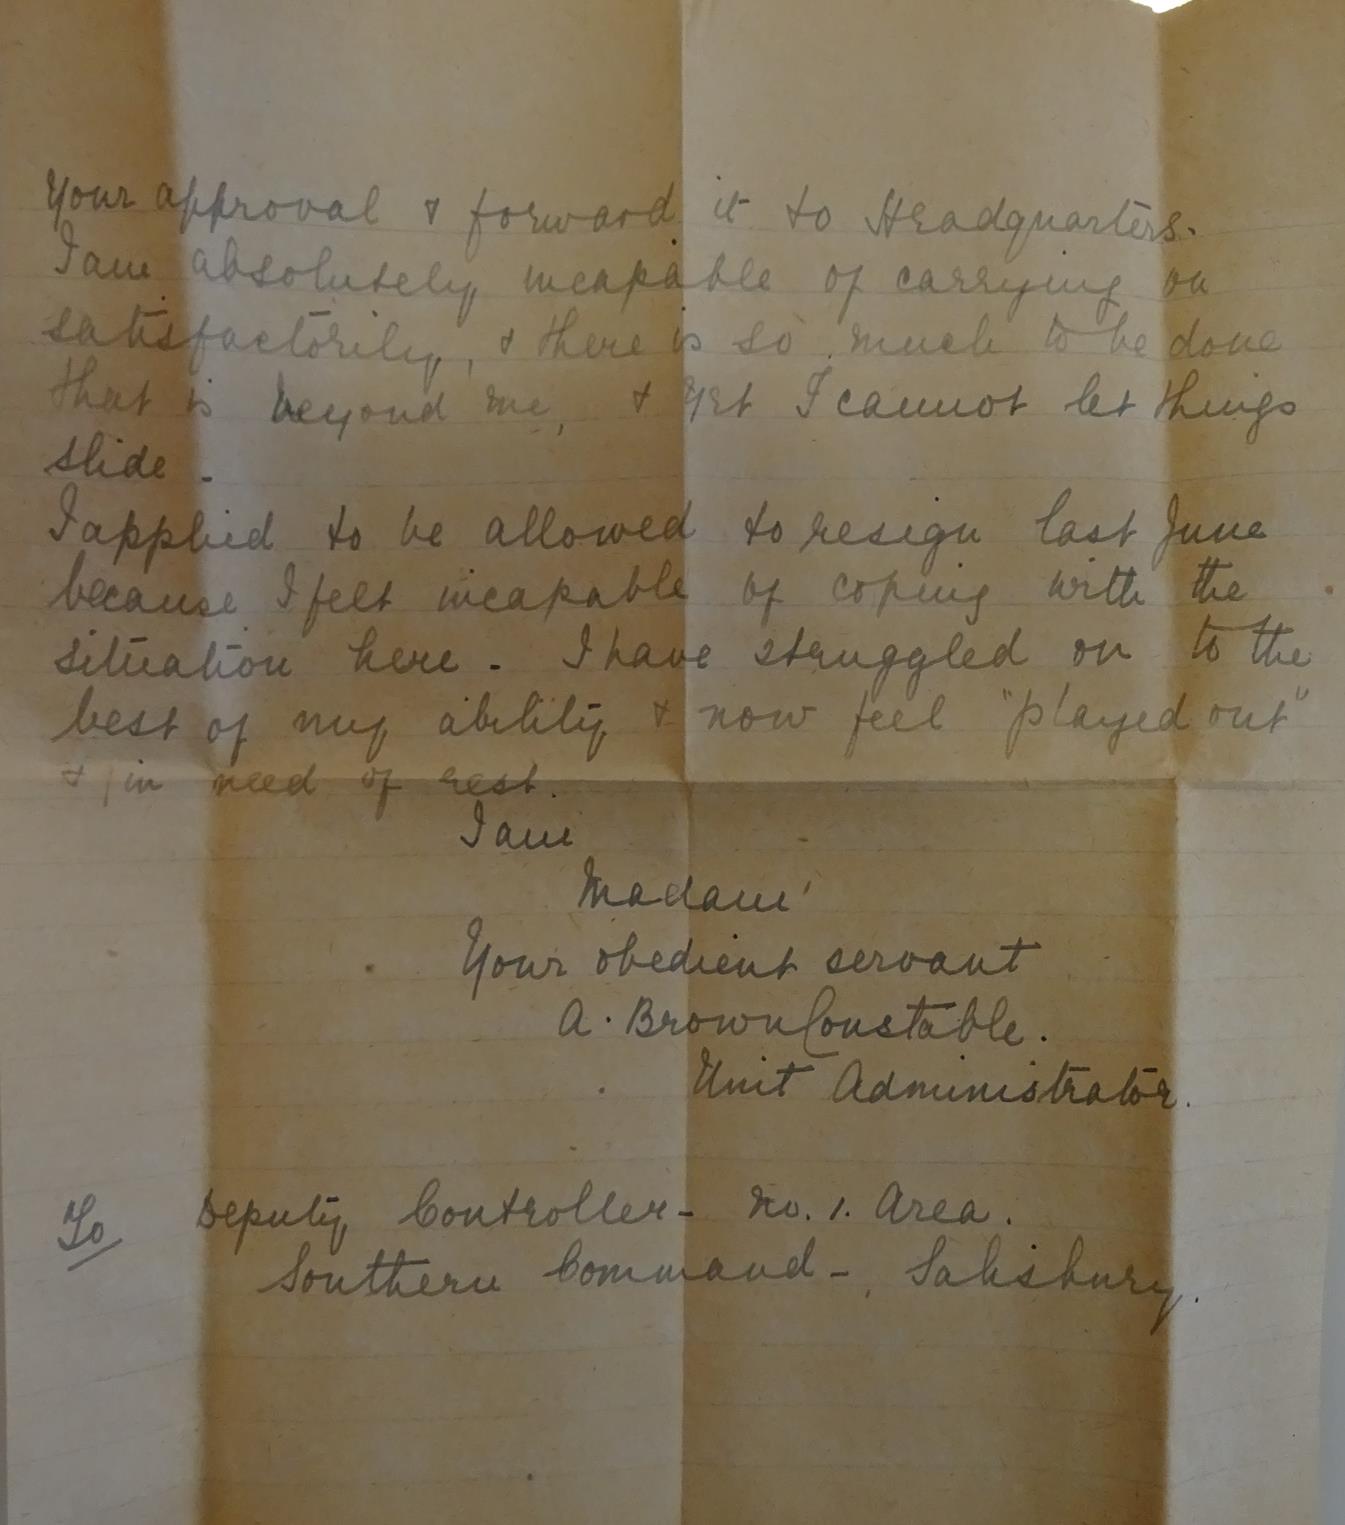 Your approval & forward it to Headquarters.
I am absolutely incapable of carrying on
satisfactorily, & there is so much to be done
that is beyond me, & yet I cannot let things
slide -
I applied to be allowed to resign last June
because I felt incapable of coping with the
situation here - I have struggled on to the
best of my ability & now feel "played out"
& in need of rest.
I am
Madam'
Your obedient servant
A. Brown Constable.
Unit Administrator.
To Deputy Controller - No. 1. Area.
Southern Command -, Salisbury.